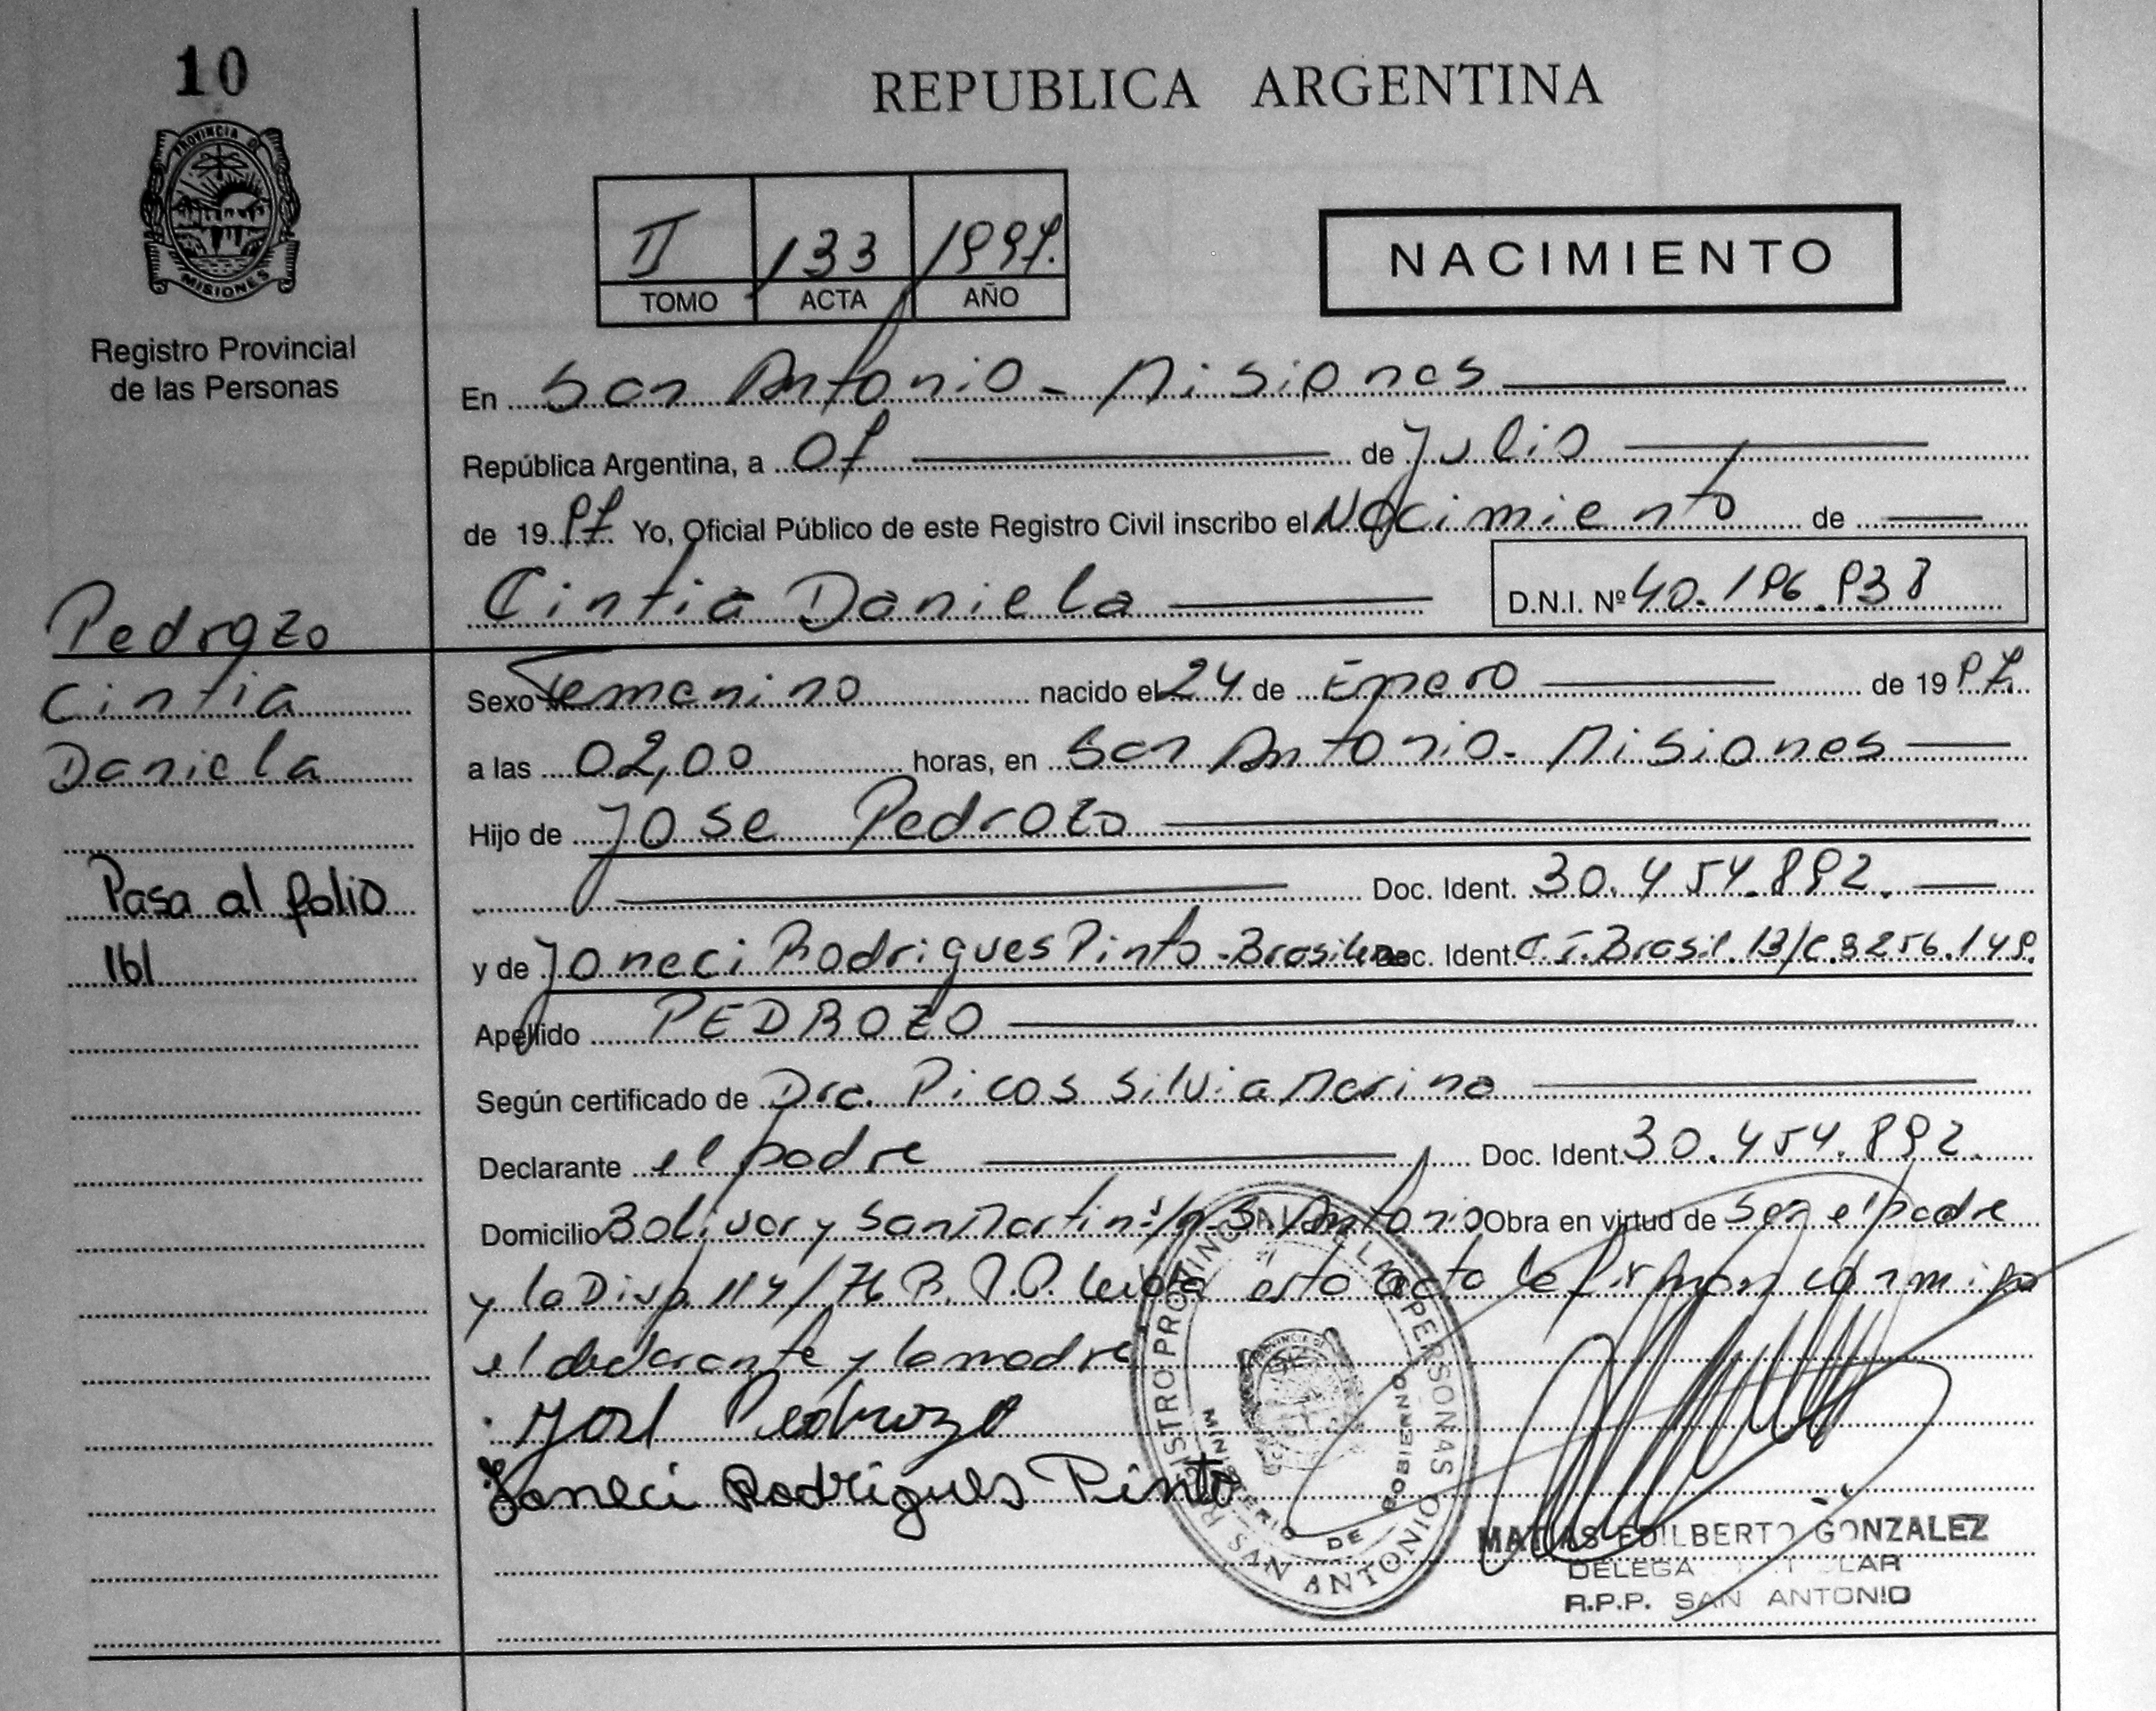 10
PROVINCIA DE
MISIONES
Registro Provincial
de las Personas
REPUBLICA ARGENTINA
II 133 1997.
TOMO ACTA AÑO
NACIMIENTO
En San Antonio - Misiones
República Argentina, a 07 de Julio
de 1997 Yo, Oficial Público de este Registro Civil inscribo el Nacimiento de
Cintia Daniela D.N.I. Nº 40.196.938
Pedrozo
Cintia
Daniela
Pasa al folio
161
Sexo Femenino nacido el 24 de Enero de 1997.
a las 02,00 horas, en San Antonio - Misiones
Hijo de Jose Pedrozo
Doc. Ident. 30.454.892.
y de Joneci Rodrigues Pinto - Brasilena Doc. Ident. C.I. Brasil. 13/C.3256.149.
Apellido PEDROZO
Según certificado de Dra. Picos Silvia Marina
Declarante el padre Doc. Ident. 30.454.892.
Domicilio Bolivar y San Martin s/n - S. Antonio Obra en virtud de ser el padre
y la Disp. 114/76 R.P.P. leida esta acta la firman conmigo
el declarante y la madre
José Pedrozo
Joneci Rodrigues Pinto
REGISTRO PROVINCIAL DE LAS PERSONAS
MINISTERIO DE GOBIERNO
SAN ANTONIO
MATIAS EDILBERTO GONZALEZ
R.P.P. SAN ANTONIO